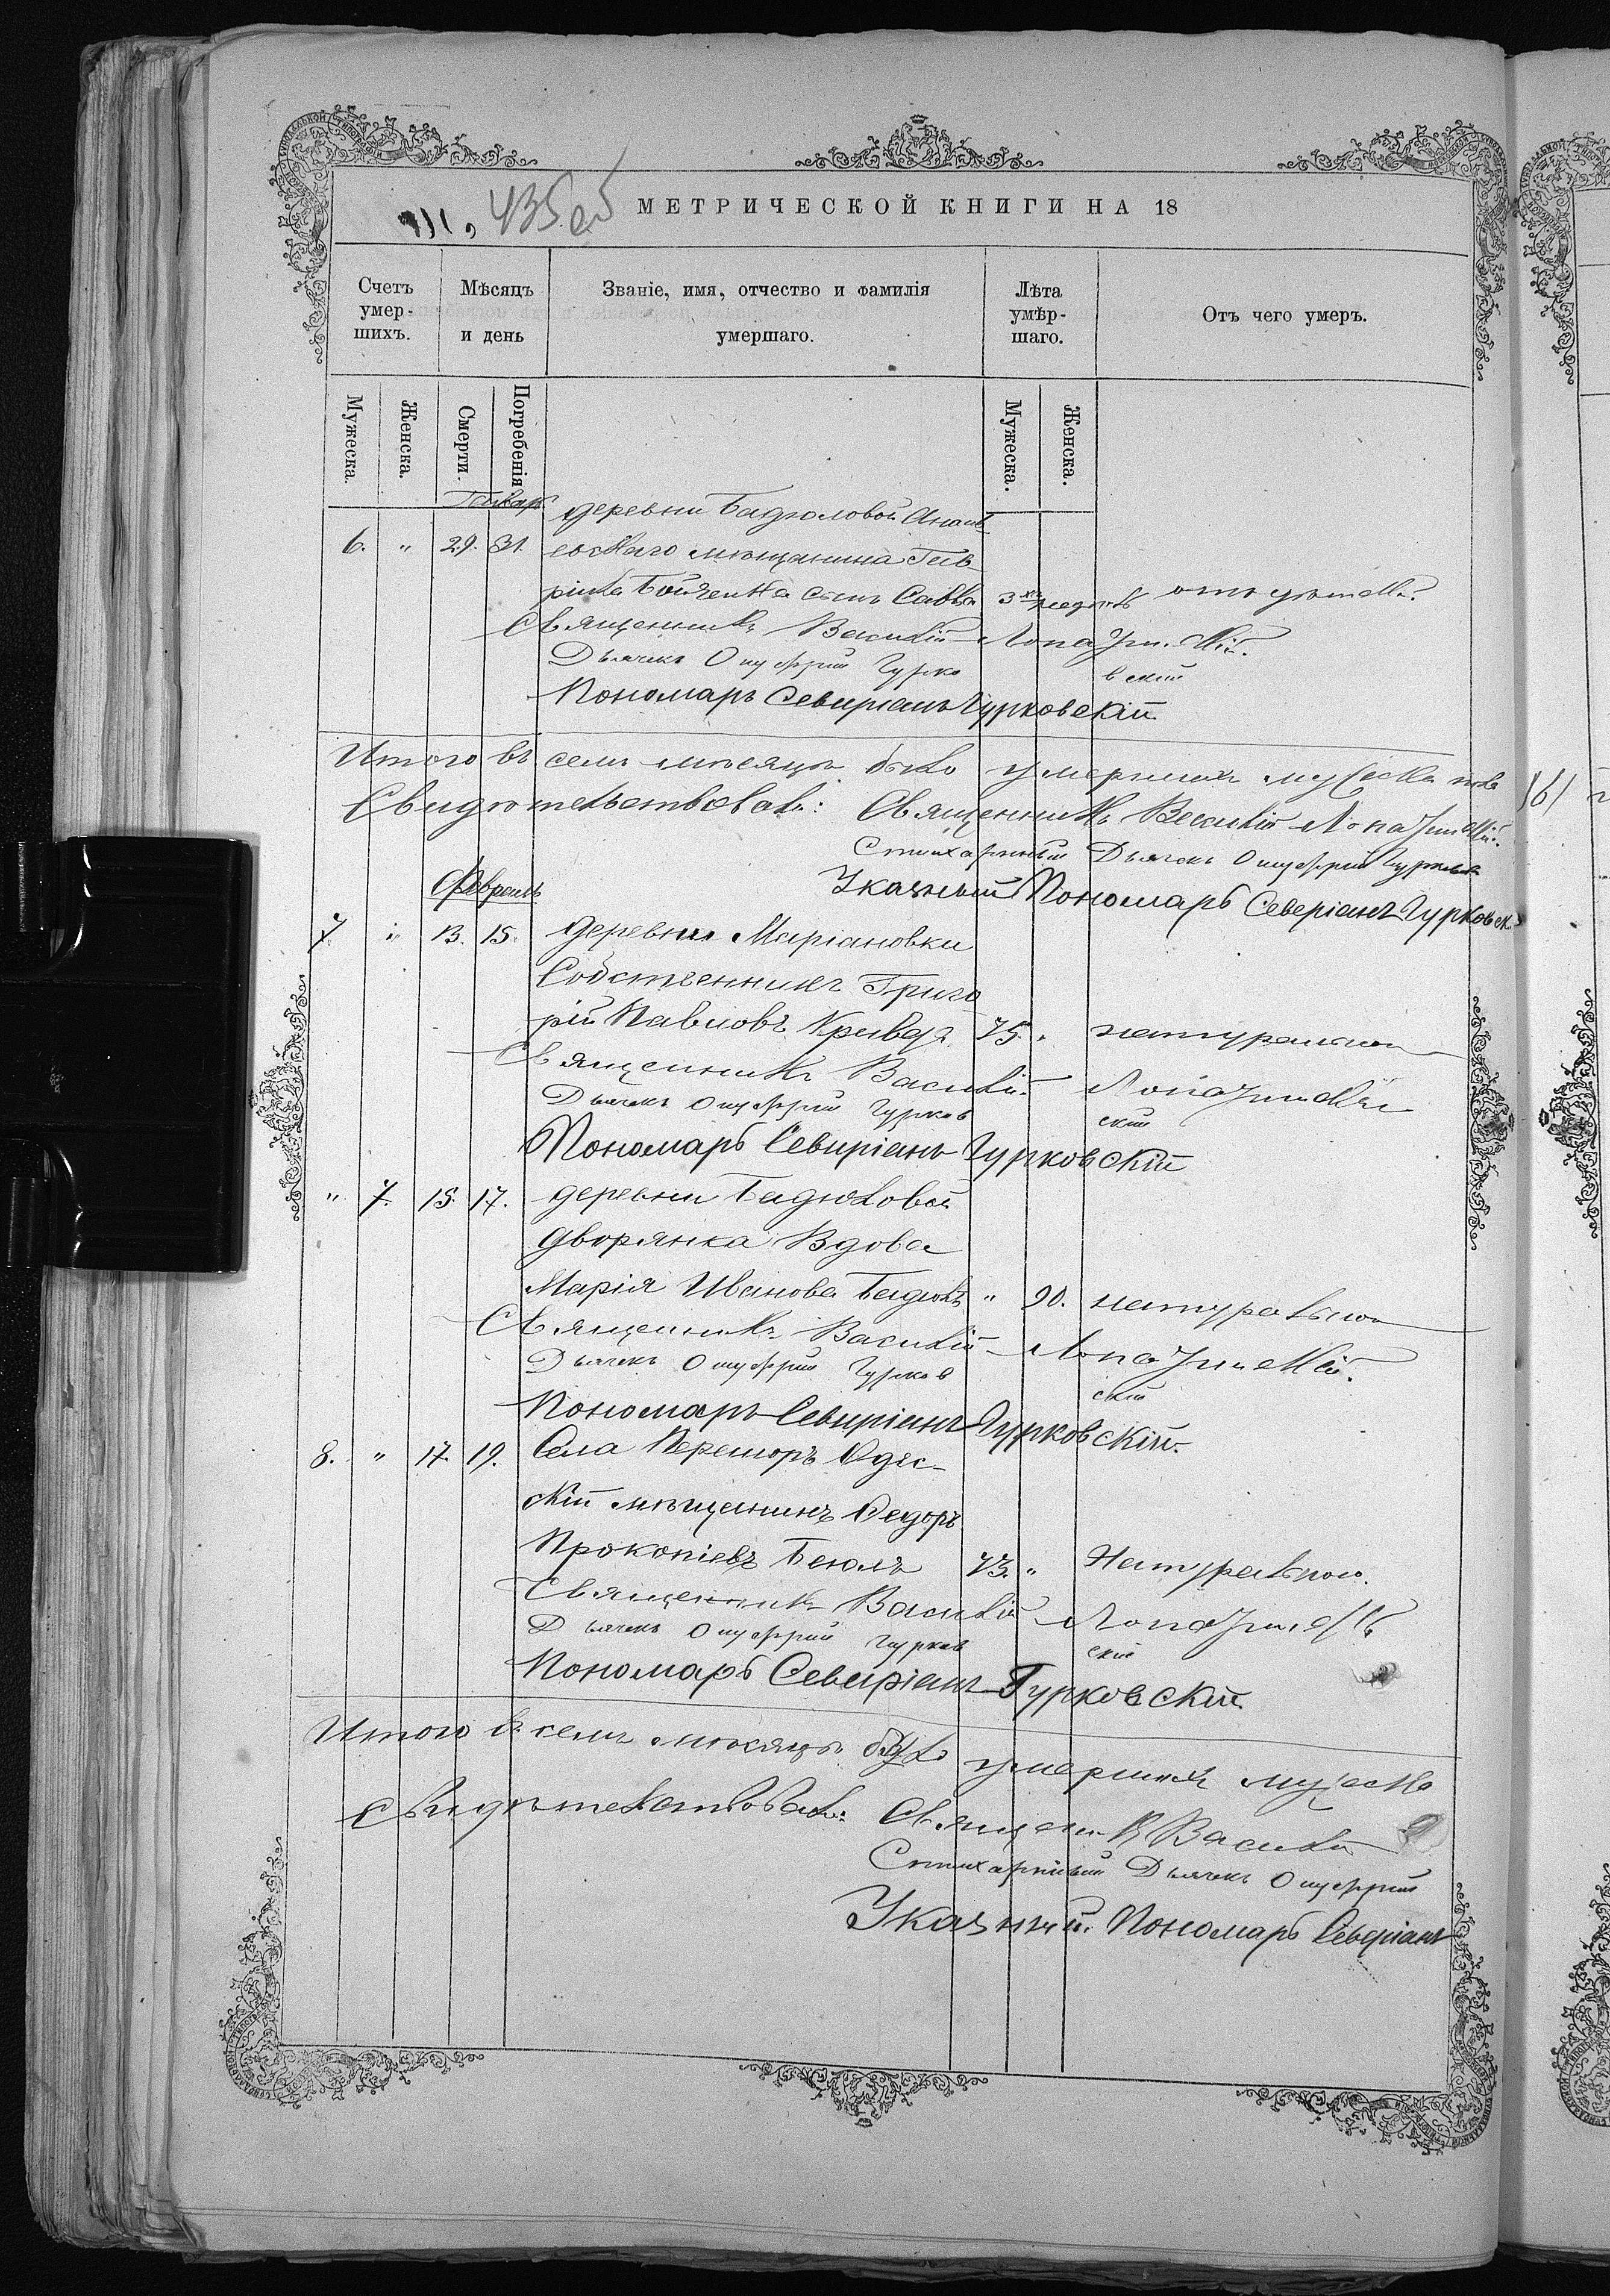 435 об
МЕТРИЧЕСКОЙ КНИГИ НА 18
Счетъ умер-шихъ.
Мѣсяцъ и день
Званіе, имя, отчество и фамилія умершаго.
Лѣта умѣр-шаго.
Отъ чего умеръ.
Мужеска.
Женска.
Смерти.
Погребенія
Мужеска.
Женска.
Генварь
деревни Бадюловой Анань
6. " 29. 31. евскаго мѣщанина Гав-
ріила Бойченка сынъ Савва 3хъ недѣль
Священникъ Василій
Дьячекъ Онуфрій Гурковскій
Пономарь Севиріанъ Гурковскій.
Итого въ семъ мѣсяцѣ было умершихъ мужеска пола
Свидѣтельствовали: Священникъ Василій
Стихарный Дьячекъ Онуфрій
Указный Пономарь Северіанъ Гурковск
Февраль
7. " 13. 15. деревни Маріановки
Собственникъ Григо
рій Павловъ 75. " натуральной
Священникъ Василій
Дьячекъ Онуфрій Гурковскій
Пономарь Севиріанъ Гурковскій
" 7. 15. 17. деревни Бадюловой
дворянка Вдова
Марія Иванова " 90. натуральной
Священникъ Василій
Дьячекъ Онуфрій Гурковскій
Пономарь Севиріанъ Гурковскій.
8. " 17. 19. Села Перешоръ Одес-
скій мѣщанинъ Федоръ
Прокопіевъ 73. " Натуральною.
Священникъ Василій
Дьячекъ Онуфрій Гурковскій
Пономарь Севиріанъ Гурковскій.
Итого въ семъ мѣсяцѣ было умершихъ мужеска
Свидѣтельствовали: Священникъ Василій
Стихарный Дьячекъ Онуфрій
Указный. Пономарь Северіанъ